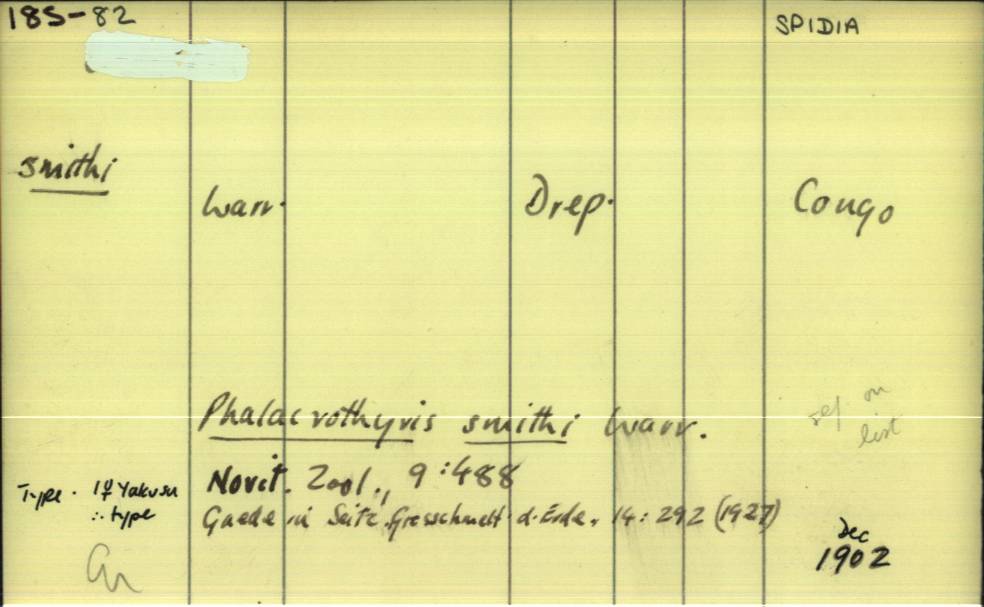 185-82
SPIDIA
smithi
Warr. Drep. Congo
Phalacrothyris smithi Warr.
ref on
list
Novit. Zool., 9:488
Type. 1♀ Yakusu
∴ type
Gaede in Seitz, Grossschmett. d. Erde. 14: 292 (1927)
Dec
1902